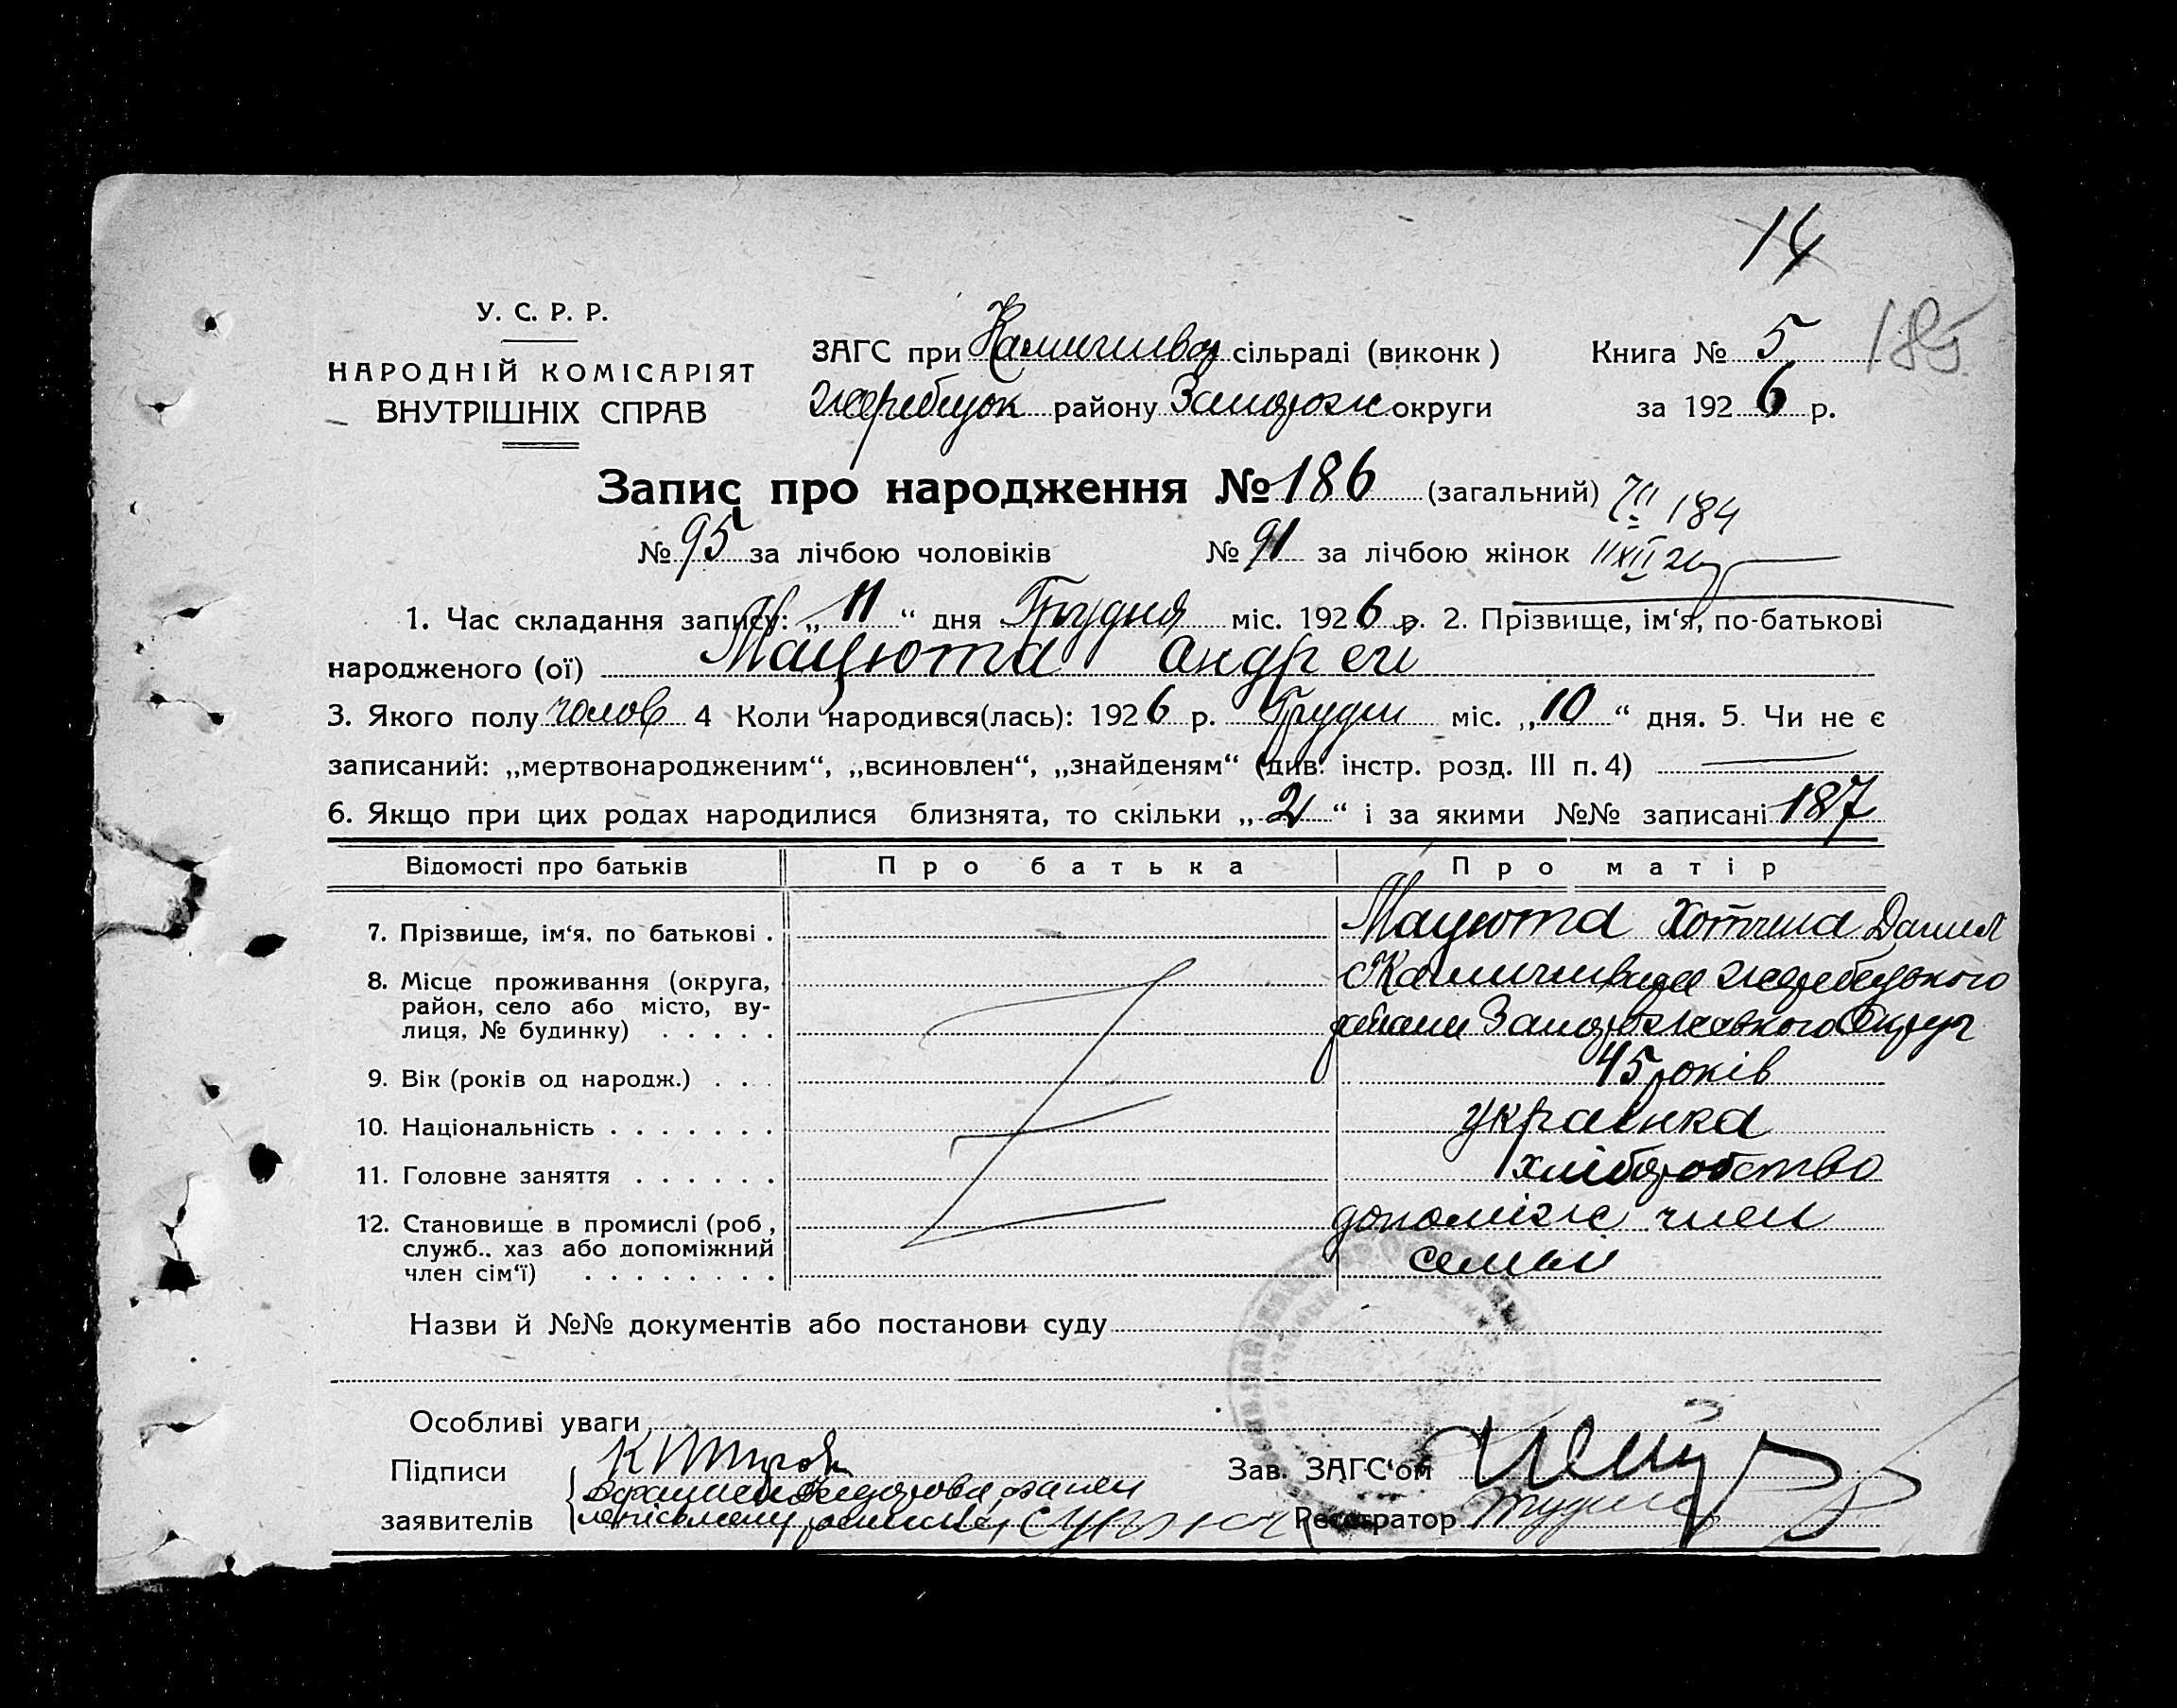 14
У. С. Р. Р.
НАРОДНІЙ КОМІСАРІЯТ
ВНУТРІШНІХ СПРАВ
ЗАГС при сільраді (виконк)
Жеребецьк району Запоріж округи
Книга № 5 185
за 1926 р.
Запис про народження № 186 (загальний) 184
№ 95 за лічбою чоловіків № 91 за лічбою жінок 11 XII 26
1. Час складання запису: „ 11 “ дня Грудня міс. 1926 р. 2. Прізвище, ім‘я, по-батькові
народженого (ої) Мацюта Андрей
3. Якого полу чолов 4 Коли народився(лась): 1926 р. Грудня міс. „ 10 “ дня. 5. Чи не є
записаний: „мертвонародженим“, „всиновлен“, „знайденям“ (див. інстр. розд. III п. 4)
6. Якщо при цих родах народилися близнята, то скільки „ 2 “ і за якими №№ записані 187
Відомості про батьків Про батька Про матір
7. Прізвище, ім‘я, по батькові . Мацюта Данил
8. Місце проживання (округа,
район, село або місто, ву-
лиця, № будинку) . . . . . Жеребецького
Округ
9. Вік (років од народж.) . . . 45 років
10. Національність . . . . . . . украінка
11. Головне заняття . . . . . . хліборобство
12. Становище в промислі (роб,
служб.. хаз або допоміжний
член сім‘ї) . . . . . . . . допоміж член
семьи
Назви й №№ документів або постанови суду
Особливі уваги
Підписи
заявителів
Зав. ЗАГС‘ом
Реєстратор